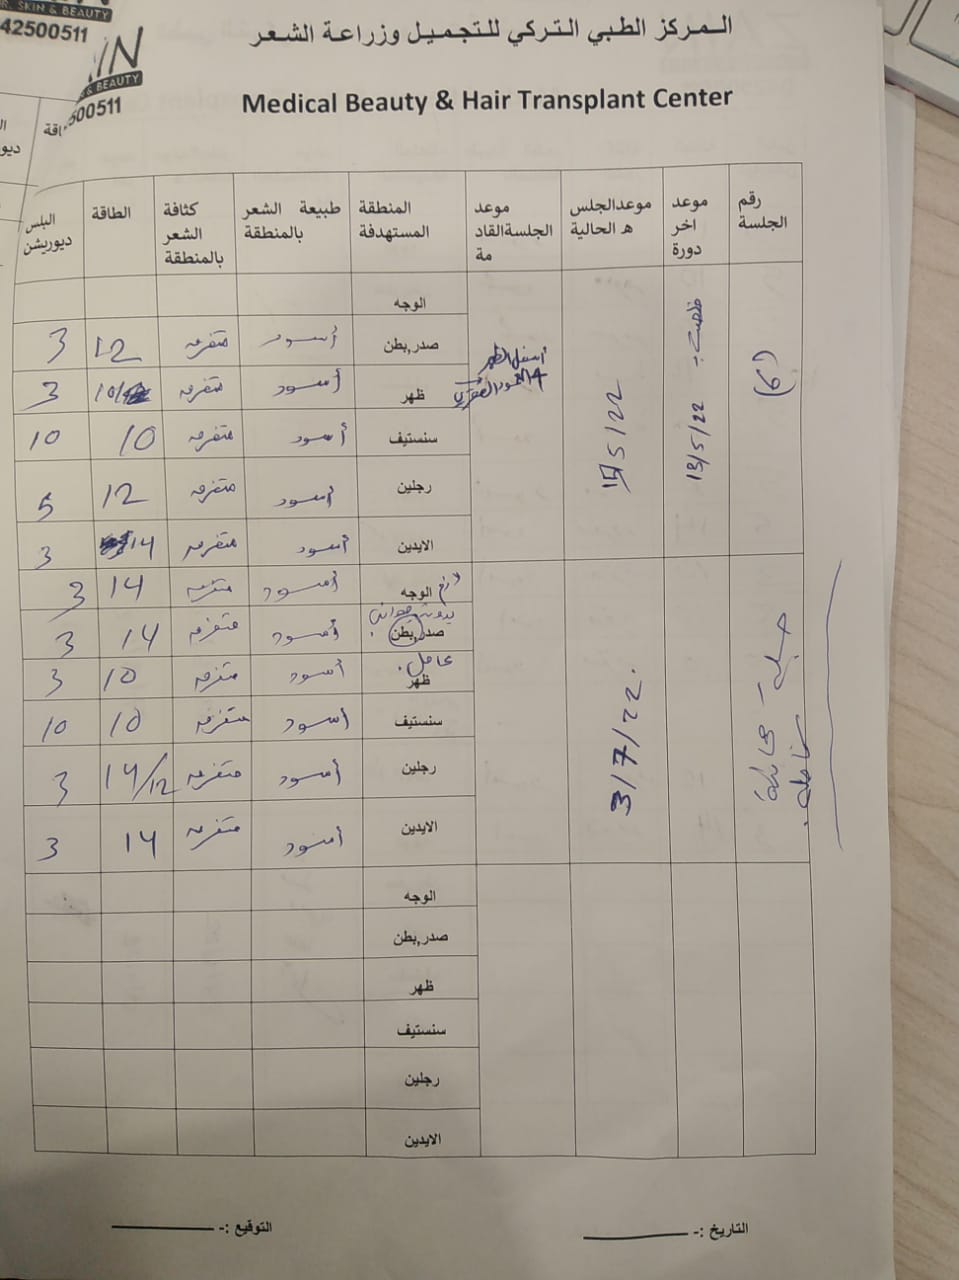 R. SKIN & BEAUTY
42500511
& BEAUTY
500511
المركز الطبي التركي للتجميل وزراعة الشعر
Medical Beauty & Hair Transplant Center
رقم الجلسة | موعد اخر دورة | موعدالجلسه الحالية | موعد الجلسةالقادمة | المنطقة المستهدفة | طبيعة الشعر بالمنطقة | كثافة الشعر بالمنطقة | الطاقة | البلس ديوريشن
(6) | 13/5/22 | 15/5/22 | أسفل الظهر
الوجه
صدر,بطن | أسود | متفرقه | 12 | 3
ظهر | أسود | متفرقه | 10/ | 3
سنستيف | أسود | متفرقه | 10 | 10
رجلين | أسود | متفرقه | 12 | 5
الايدين | أسود | متفرقه | 14 | 3
جلسة | 3/7/22
الوجه | أسود | متفرقه | 14 | 3
صدر,بطن | أسود | متفرقه | 14 | 3
ظهر | أسود | متفرقه | 10 | 3
سنستيف | أسود | متفرقه | 10 | 10
رجلين | أسود | متفرقه | 14/12 | 3
الايدين | أسود | متفرقه | 14 | 3
الوجه
صدر,بطن
ظهر
سنستيف
رجلين
الايدين
التاريخ :-
التوقيع :-